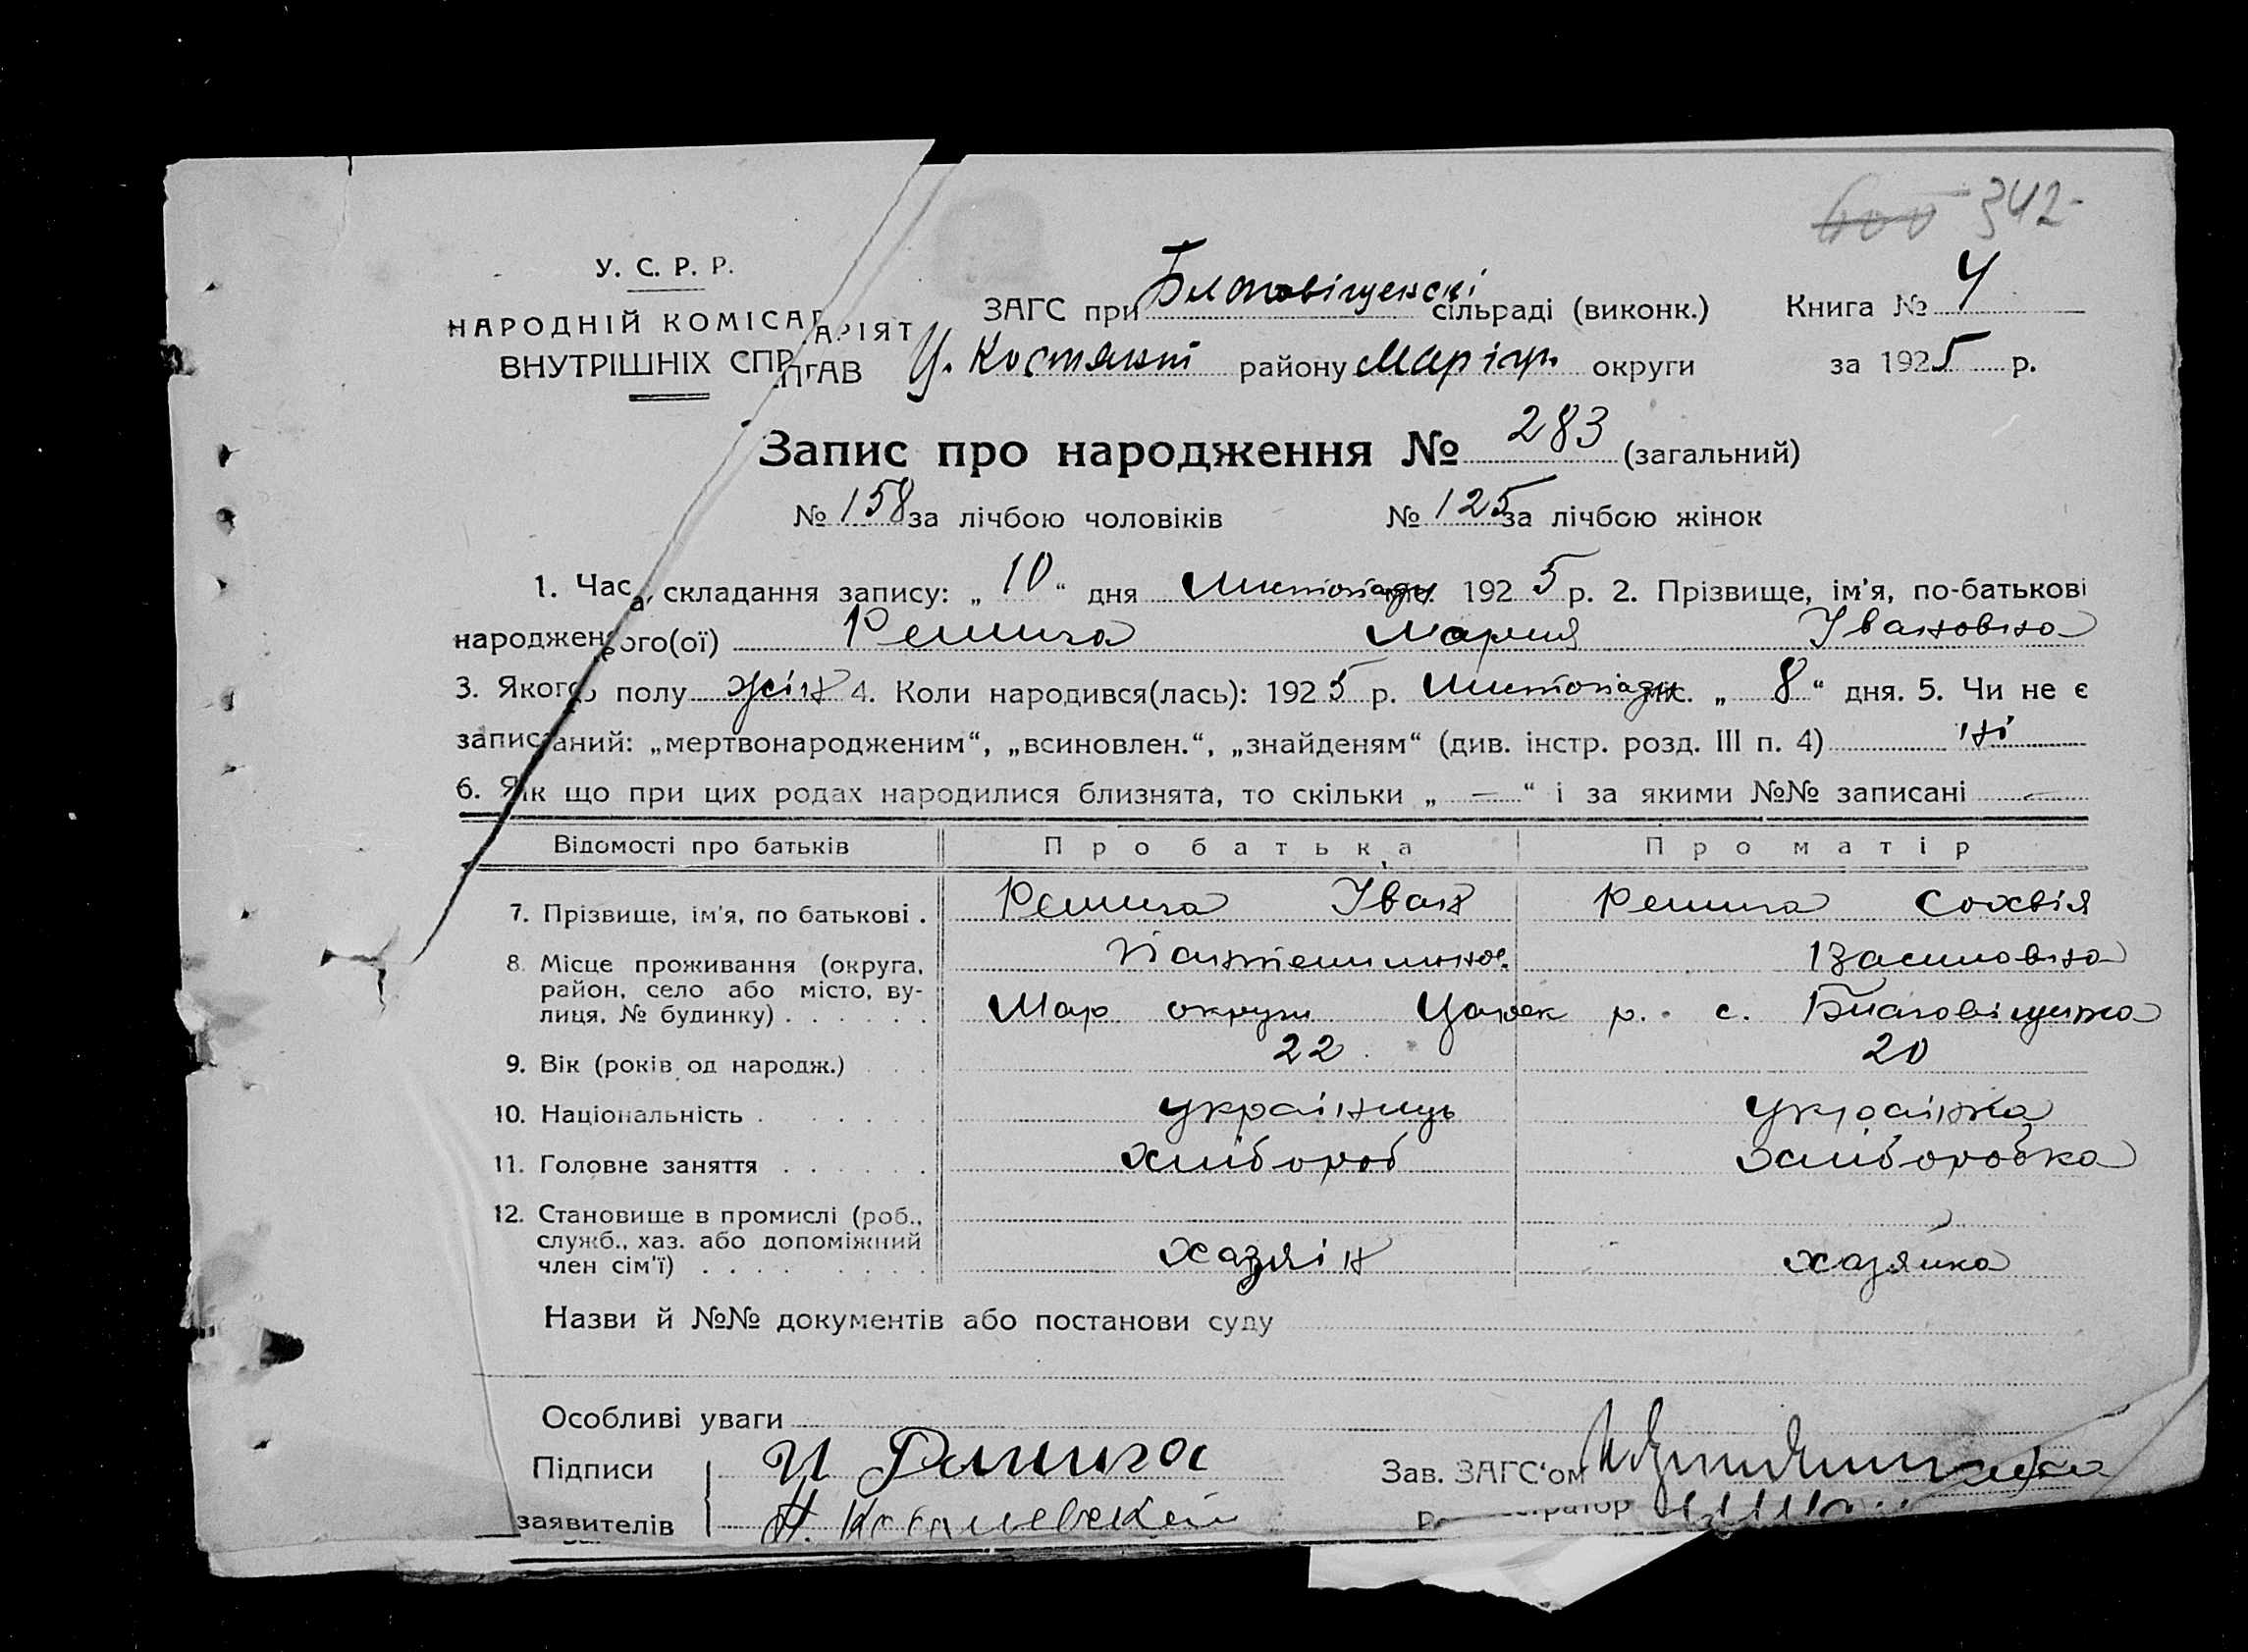 600 342-
У. С. Р. Р.
НАРОДНІЙ КОМІСАРІЯТ
ВНУТРІШНІХ СПРАВ
ЗАГС при Благовіщенскі сільраді (виконк.) Книга № 4
Ц. Костянт району Маріуп. округи за 1925 р.
Запис про народження № 283 (загальний)
№ 158 за лічбою чоловіків № 125 за лічбою жінок
1. Час складання запису: „ 10 “ дня листопада 1925 р. 2. Прізвище, ім'я, по-батькові
народженого(ої) Решига Мария Івановна
3. Якого полу жін 4. Коли народився(лась): 1925 р. листопада міс. „ 8 “ дня. 5. Чи не є
записаний: „мертвонародженим“, „всиновлен.“, „знайденям“ (див. інстр. розд. III п. 4) ні
6. Як що при цих родах народилися близнята, то скільки „ — “ і за якими №№ записані —
Відомості про батьків Про батька Про матір
7. Прізвище, ім'я, по батькові . Решига Іван Решига Софвія
Пантелимонов. Василовна
8. Місце проживання (округа,
район, село або місто, ву-
лиця, № будинку) . . . . . . Мар округи р. с. Благовіщенка
9. Вік (років од народж.) . . 22 20
10. Національність . . . . . українець українка
11. Головне заняття . . . . . хлібороб хліборобка
12. Становище в промислі (роб.,
служб., хаз. або допоміжний
член сім'ї) . . . . . . . . . хазяїн хазяйка
Назви й №№ документів або постанови суду
Особливі уваги
Підписи И Решига Зав. ЗАГС'ом
заявителів